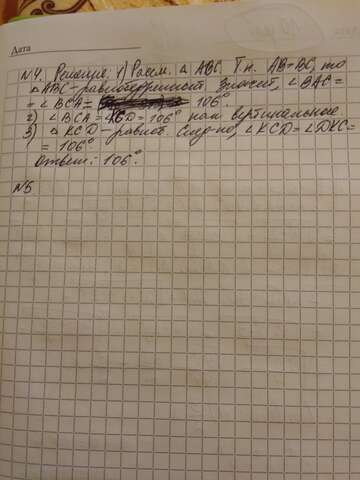 Дата
№4. Решение. 1) Рассм. △ ABC. Т.к. AB=BC, то
△ ABC - равнобедренный. Значит, ∠BAC=
= ∠BCA= 106°.
2) ∠BCA= KCD= 106° как вертикальные
3) △ KCD - равноб. След-но, ∠KCD= ∠DKC=
= 106°.
Ответ: 106°.
№5